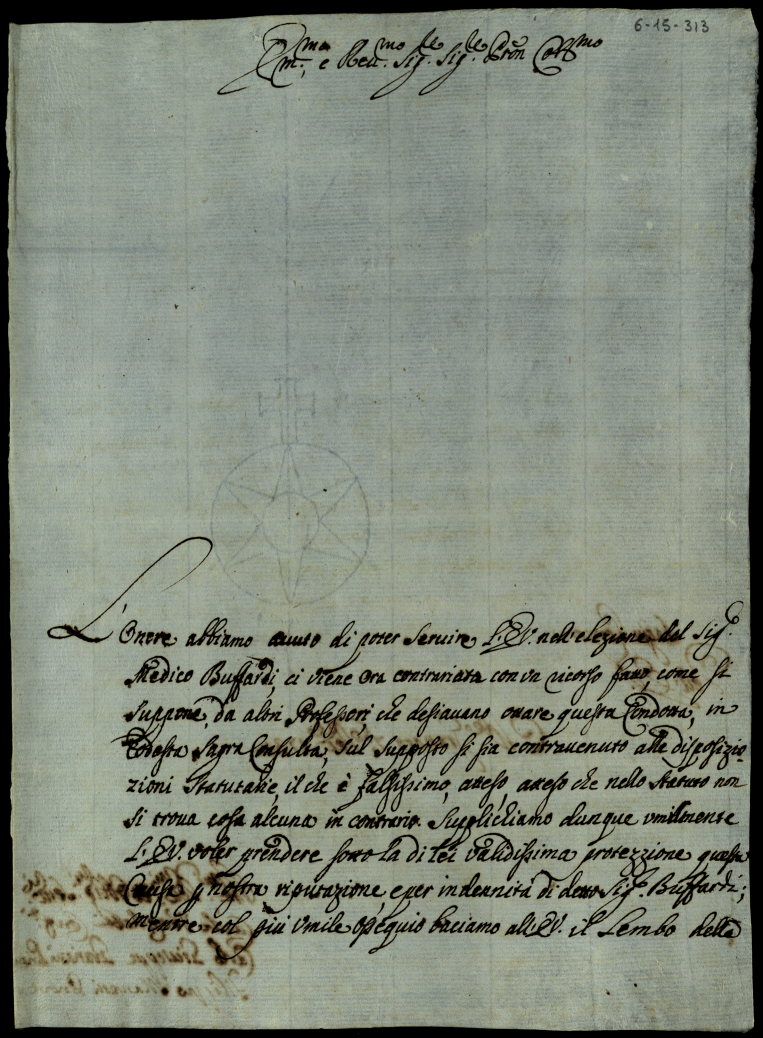 6-15-313
Em.mo, e Reu.mo Sig.re Sig.re Pron Col.mo
L'Onore abbiamo auuto di poter seruire L'E.V. nell'elezione del Sig.r
Medico Buffardi, ci viene ora contrariata con vn ricorso fatto, come si
suppone, da altri Professori, che desiauano ottare questa Condotta, in
Codesta Sagra Consulta, sul supposto si sia contrauenuto alle disposizio-
zioni Statutarie, il che è falsissimo, atteso, atteso che nello statuto non
si troua cosa alcuna in contrario. Supplichiamo dunque vmilmente
L'E.V. voler prendere sotto la di lei validissima protezzione questa
Causa p nostra riputazione, e per indennità di detto Sig.r Buffardi;
Mentre col più vmile ossequio baciamo all'E.V. il Lembo della